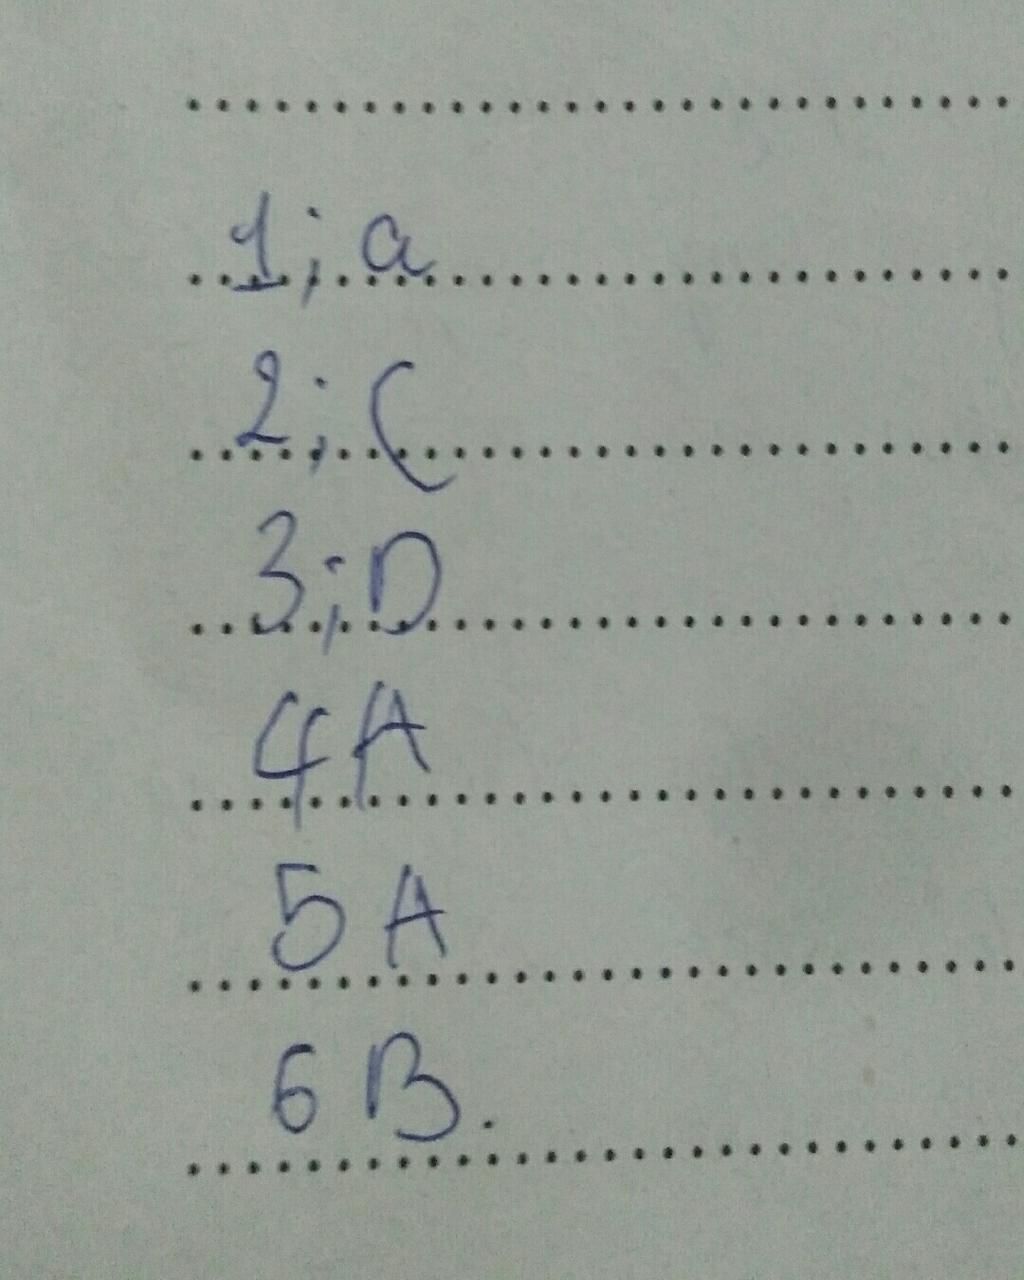 1; a
2; C
3; D
4 A
5 A
6 B.